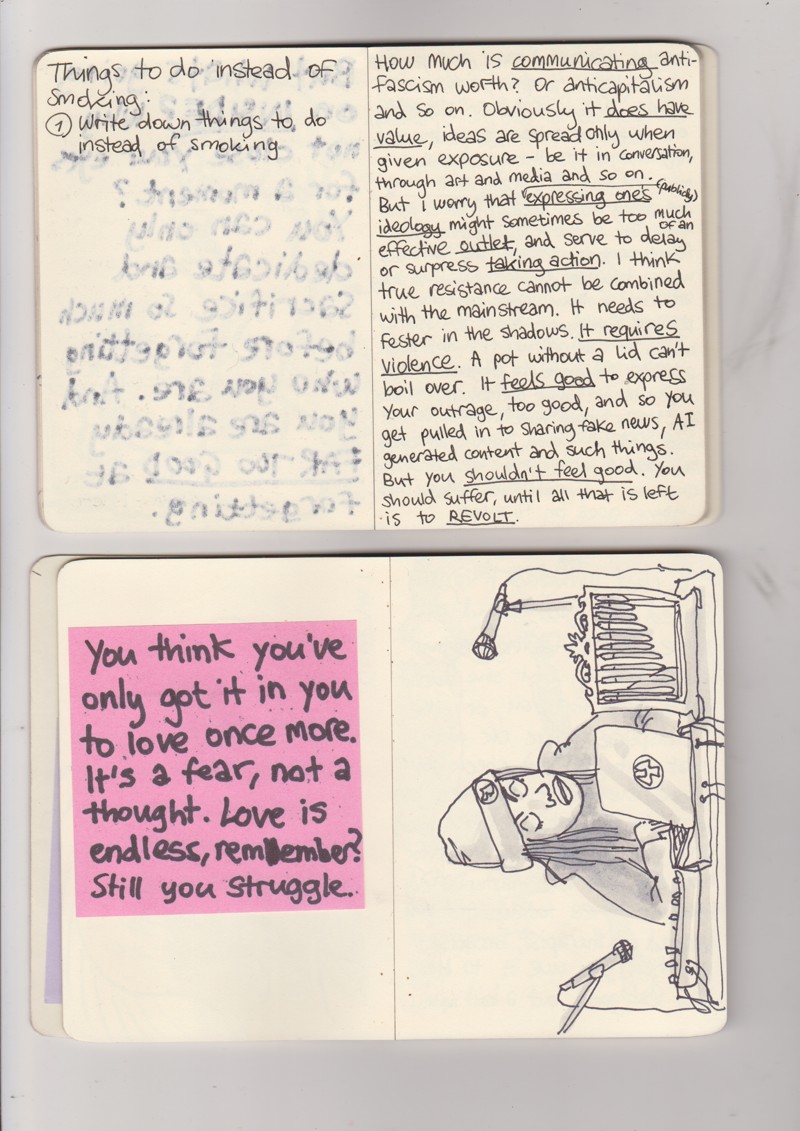 Things to do instead of
smoking:
① Write down things to do
instead of smoking
not close your eyes
for a moment?
You can only
dedicate and
sacrifice so much
before forgetting
who you are. And
you are already
FAR TOO GOOD at
forgetting.
How much is communicating anti-
fascism worth? Or anticapitalism
and so on. Obviously it does have
value, ideas are spread only when
given exposure – be it in conversation,
through art and media and so on.
But I worry that expressing one's (publicly)
ideology might sometimes be too much of an
effective outlet, and serve to delay
or surpress taking action. I think
true resistance cannot be combined
with the mainstream. It needs to
fester in the shadows. It requires
violence. A pot without a lid can't
boil over. It feels good to express
your outrage, too good, and so you
get pulled in to sharing fake news, AI
generated content and such things.
But you shouldn't feel good. You
should suffer, until all that is left
is to REVOLT.
You think you've
only got it in you
to love once more.
It's a fear, not a
thought. Love is
endless, remember?
Still you struggle.